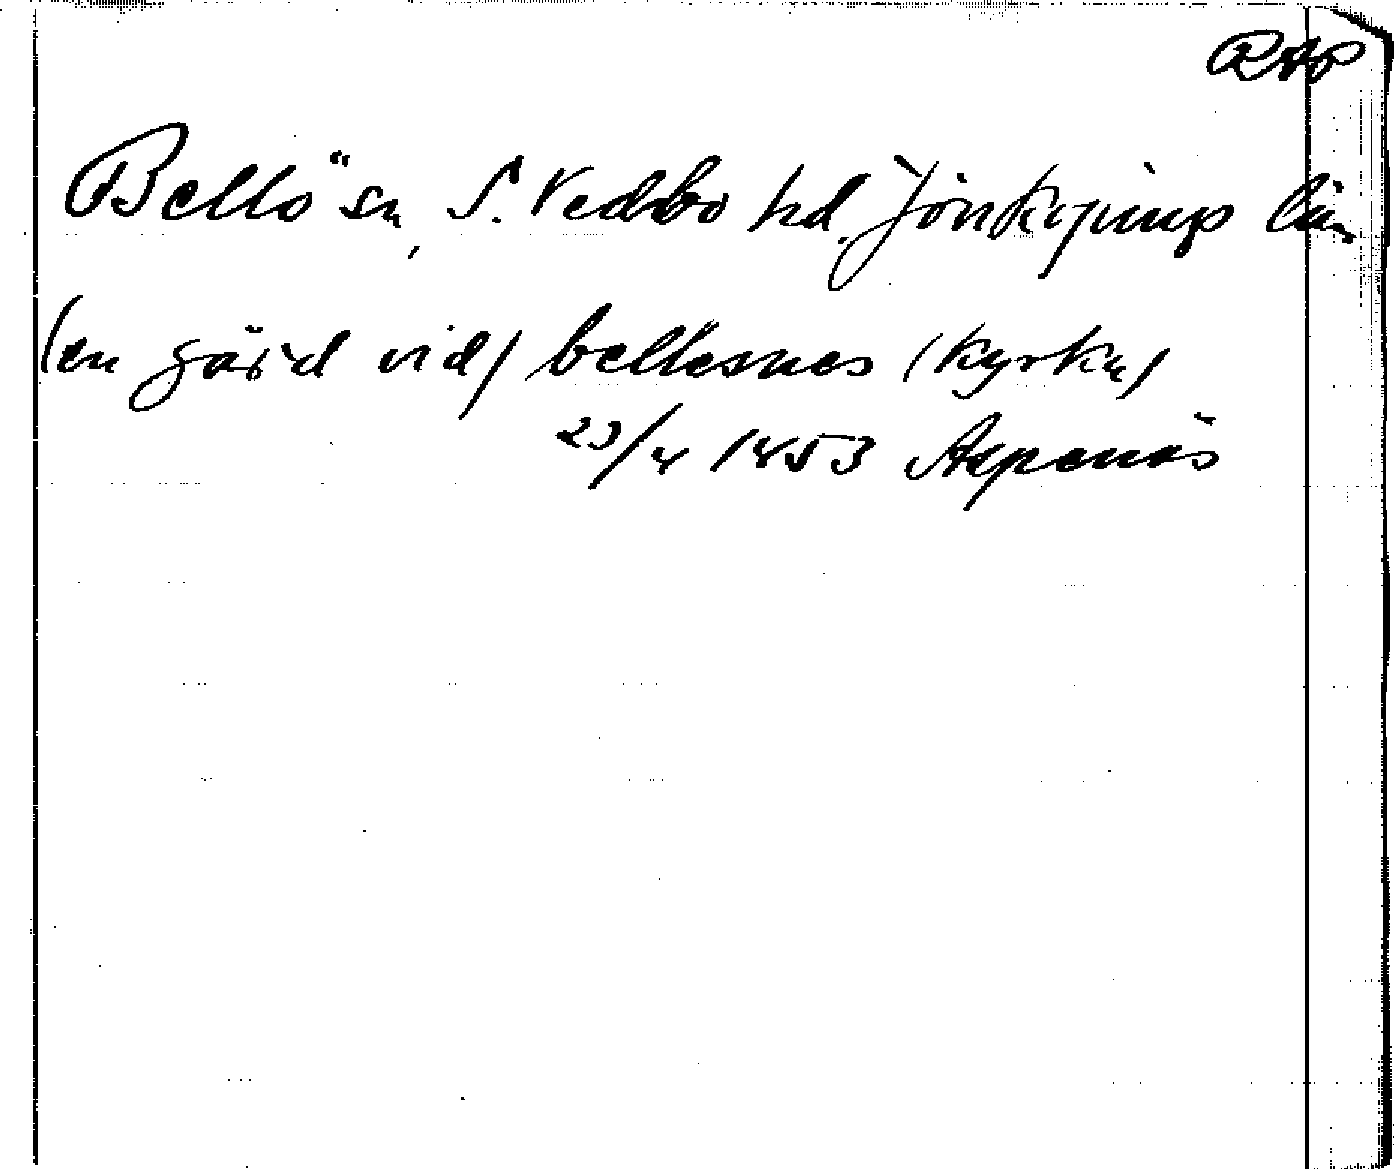 RAp
Bellö sn, S. Vedbo hd. Jönköpings län
(en gård vid) bellesnes (kyrka)
23/4 1453 Aspenäs